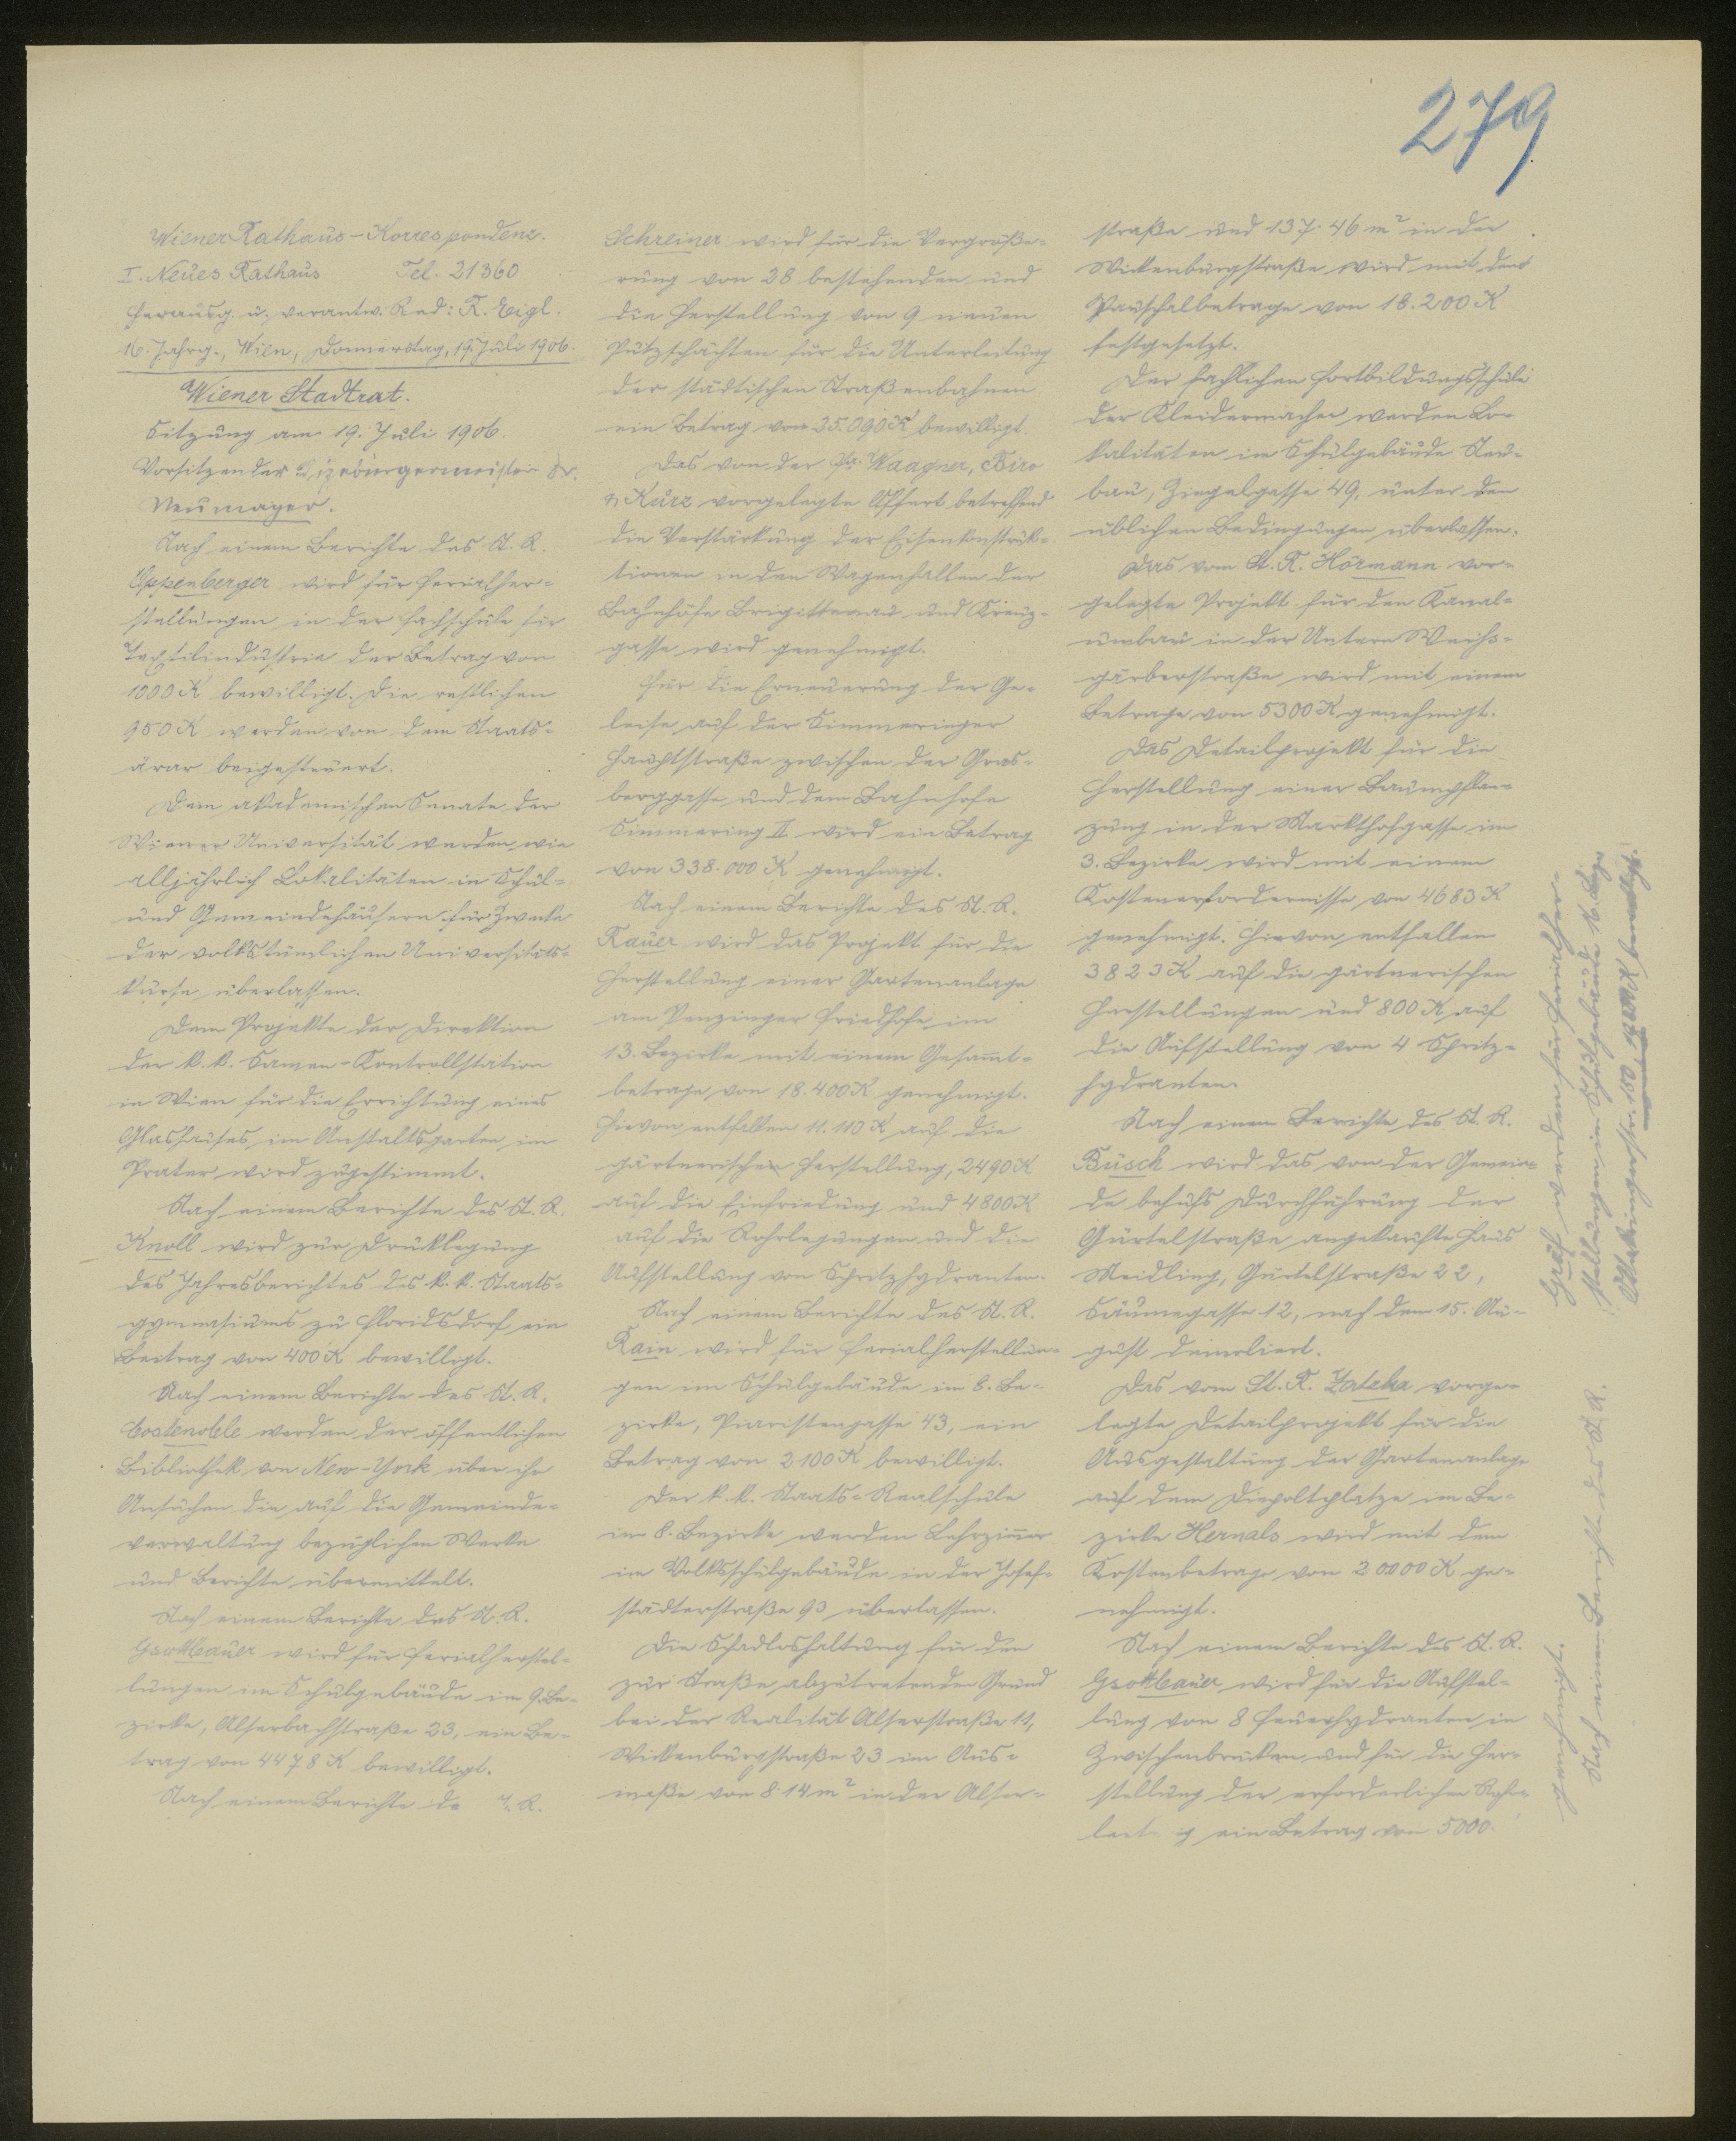 279
Wiener Rathaus-Korrespondenz.
I. Neues Rathaus Tel. 21360
Herausg. u. verantw. Red: R. Eigl.
16. Jahrg., Wien, Donnerstag, 19. Juli 1906.
Wiener Stadtrat.
Sitzung am 19. Juli 1906.
Vorsitzender Vizebürgermeister Dr.
Neumayer.
Nach einem Berichte des St. R.
Oppenberger wird für Ferialher-
stellungen in der Fachschule für
Textilindustrie der Betrag von
1000 K bewilligt. Die restlichen
950 K werden von dem Staats-
ärar beigesteuert.
Dem akademischen Senate der
Wiener Universität werden wie
alljährlich Lokalitäten in Schul-
und Gemeindehäusern für Zwecke
der volkstümlichen Universitäts-
kurse überlassen.
Dem Projekte der Direktion
der k. k. Samen-Kontrollstation
in Wien für die Errichtung eines
Glashauses im Anstaltsgarten im
Prater wird zugestimmt.
Nach einem Berichte des St. R.
Knoll wird zur Drucklegung
des Jahresberichtes des k. k. Staats-
gymnasiums zu Floridsdorf ein
Beitrag von 400 K bewilligt.
Nach einem Berichte des St. R.
Costenoble werden der öffentlichen
Bibliothek von New-York über ihr
Ansuchen die auf die Gemeinde-
verwaltung bezüglichen Werke
und Berichte übermittelt.
Nach einem Berichte des St. R.
Gsottbauer wird für Ferialherstel-
lungen im Schulgebäude im 9. Be-
zirke, Alserbachstraße 23, ein Be-
trag von 4478 K bewilligt.
Nach einem Berichte de R.
Schreiner wird für die Vergröße-
rung von 28 bestehenden und
die Herstellung von 9 neuen
Putzschächten für die Unterleitung
der städtischen Straßenbahnen
ein Betrag von 35.090 K bewilligt.
Das von der Fa. Waagner, Biro
& Kurz vorgelegte Offert betreffend
die Verstärkung der Eisenkonstruk-
tionen in den Wagenhallen der
Bahnhöfe Brigittenau und Kreuz-
gasse wird genehmigt.
Für die Erneuerung der Ge-
leise auf der Simmeringer
Hauptstraße zwischen der Gras-
berggasse und dem Bahnhofe
Simmering II wird ein Betrag
von 338.000 K genehmigt.
Nach einem Berichte des St. R.
Rauer wird das Projekt für die
Herstellung einer Gartenanlage
am Penzinger Friedhofe im
13. Bezirke mit einem Gesammt-
betrage von 18.400 K genehmigt.
Hievon entfallen 11.110 K auf die
gärtnerischen Herstellung, 2490 K
auf die Einfriedung und 4800 K
auf die Rohrlegungen und die
Aufstellung von Spritzhydranten.
Nach einem Berichte des St. R.
Rain wird für Ferialherstellun-
gen im Schulgebäude im 8. Be-
zirke, Piaristengasse 43, ein
Betrag von 2100 K bewilligt.
Der k. k. Staats-Realschule
im 8. Bezirke werden Lehrzimmer
im Volksschulgebäude in der Josef-
städterstraße 93 überlassen.
Die Schadloshaltung für den
zur Straße abzutretenden Grund
bei der Realität Alserstraße 11,
Wickenburgstraße 23 im Aus-
maße von 8.14 m² in der Alser-
straße und 137.46 m² in der
Wickenburgstraße wird mit dem
Pauschalbetrage von 18.200 K
festgesetzt.
Der fachlichen Fortbildungsschule
der Kleidermacher werden Lo-
kalitäten im Schulgebäude Neu-
bau, Ziegelgasse 49, unter den
üblichen Bedingungen überlassen.
Das vom St. R. Hörmann vor-
gelegte Projekt für den Kanal-
umbau in der Untern Weiß-
gärberstraße wird mit einem
Betrage von 5300 K genehmigt.
Das Detailprojekt für die
Herstellung einer Baumpflan-
zung in der Markthofgasse im
3. Bezirke wird mit einem
Kostenerfordernisse von 4683 K
genehmigt. Hievon entfallen
3823 K auf die gärtnerischen
Herstellungen und 800 K auf
die Aufstellung von 4 Spritz-
hydranten.
Nach einem Berichte des St. R.
Büsch wird das von der Gemein-
de behufs Durchführung der
Gürtelstraße angekaufte Haus
Meidling, Gürtelstraße 22,
Säumegasse 12, nach dem 15. Au-
gust demoliert.
Das vom St. R. Zatzka vorge-
legte Detailprojekt für die
Ausgestaltung der Gartenanlage
auf dem Diepoltplatze im Be-
zirke Hernals wird mit dem
Kostenbetrage von 20000 K ge-
nehmigt.
Nach einem Berichte des St. R.
Gsottbauer wird für die Aufstel-
lung von 8 Feuerhydranten in
Zwischenbrücken und für die Her-
stellung der erforderlichen Rohr-
leit g ein Betrag von 5000
genehmigt.
Nach einem Berichte des St. R.
Gräf werden für Ferialher-
stellungen im Schulgebäude 16. Bez.
Ottakringerstr. 150, bewilligt.